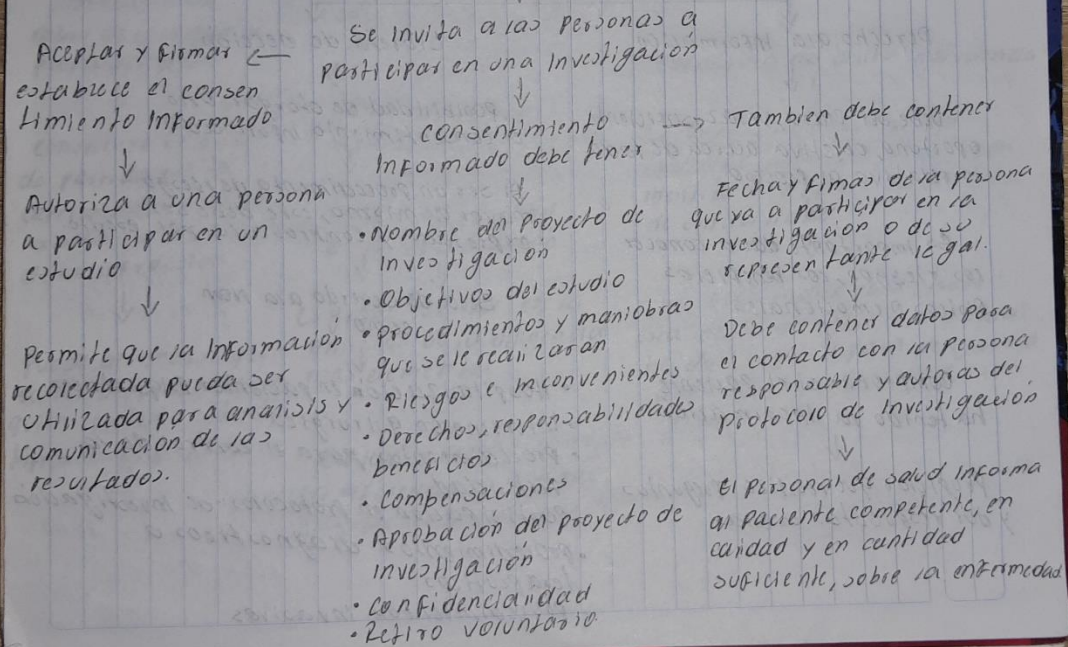 Se invita a las personas a
participar en una Investigación
Aceptar y firmar ←
establece el consen
timiento Informado
↓
Autoriza a una persona
a participar en un
estudio
↓
Permite que la Información
recolectada pueda ser
utilizada para analisis y
comunicación de las
resultados.
↓
consentimiento
Informado debe tener
↓
• Nombre del Proyecto de
investigación
• Objetivos del estudio
• procedimientos y maniobras
que se le realizaran
• Riesgos e inconvenientes
• Derechos, responsabilidades
beneficios
• compensaciones
• Aprobación del proyecto de
investigación
• confidencialidad
• Retiro voluntario
→ Tambien debe contener
↓
Fecha y fimas de la persona
que va a participar en la
investigación o de su
representante legal.
↓
Debe contener datos para
el contacto con la persona
responsable y autoras del
Protocolo de Investigación
↓
El personal de salud informa
al paciente competente, en
calidad y en cantidad
suficiente, sobre la enfermedad